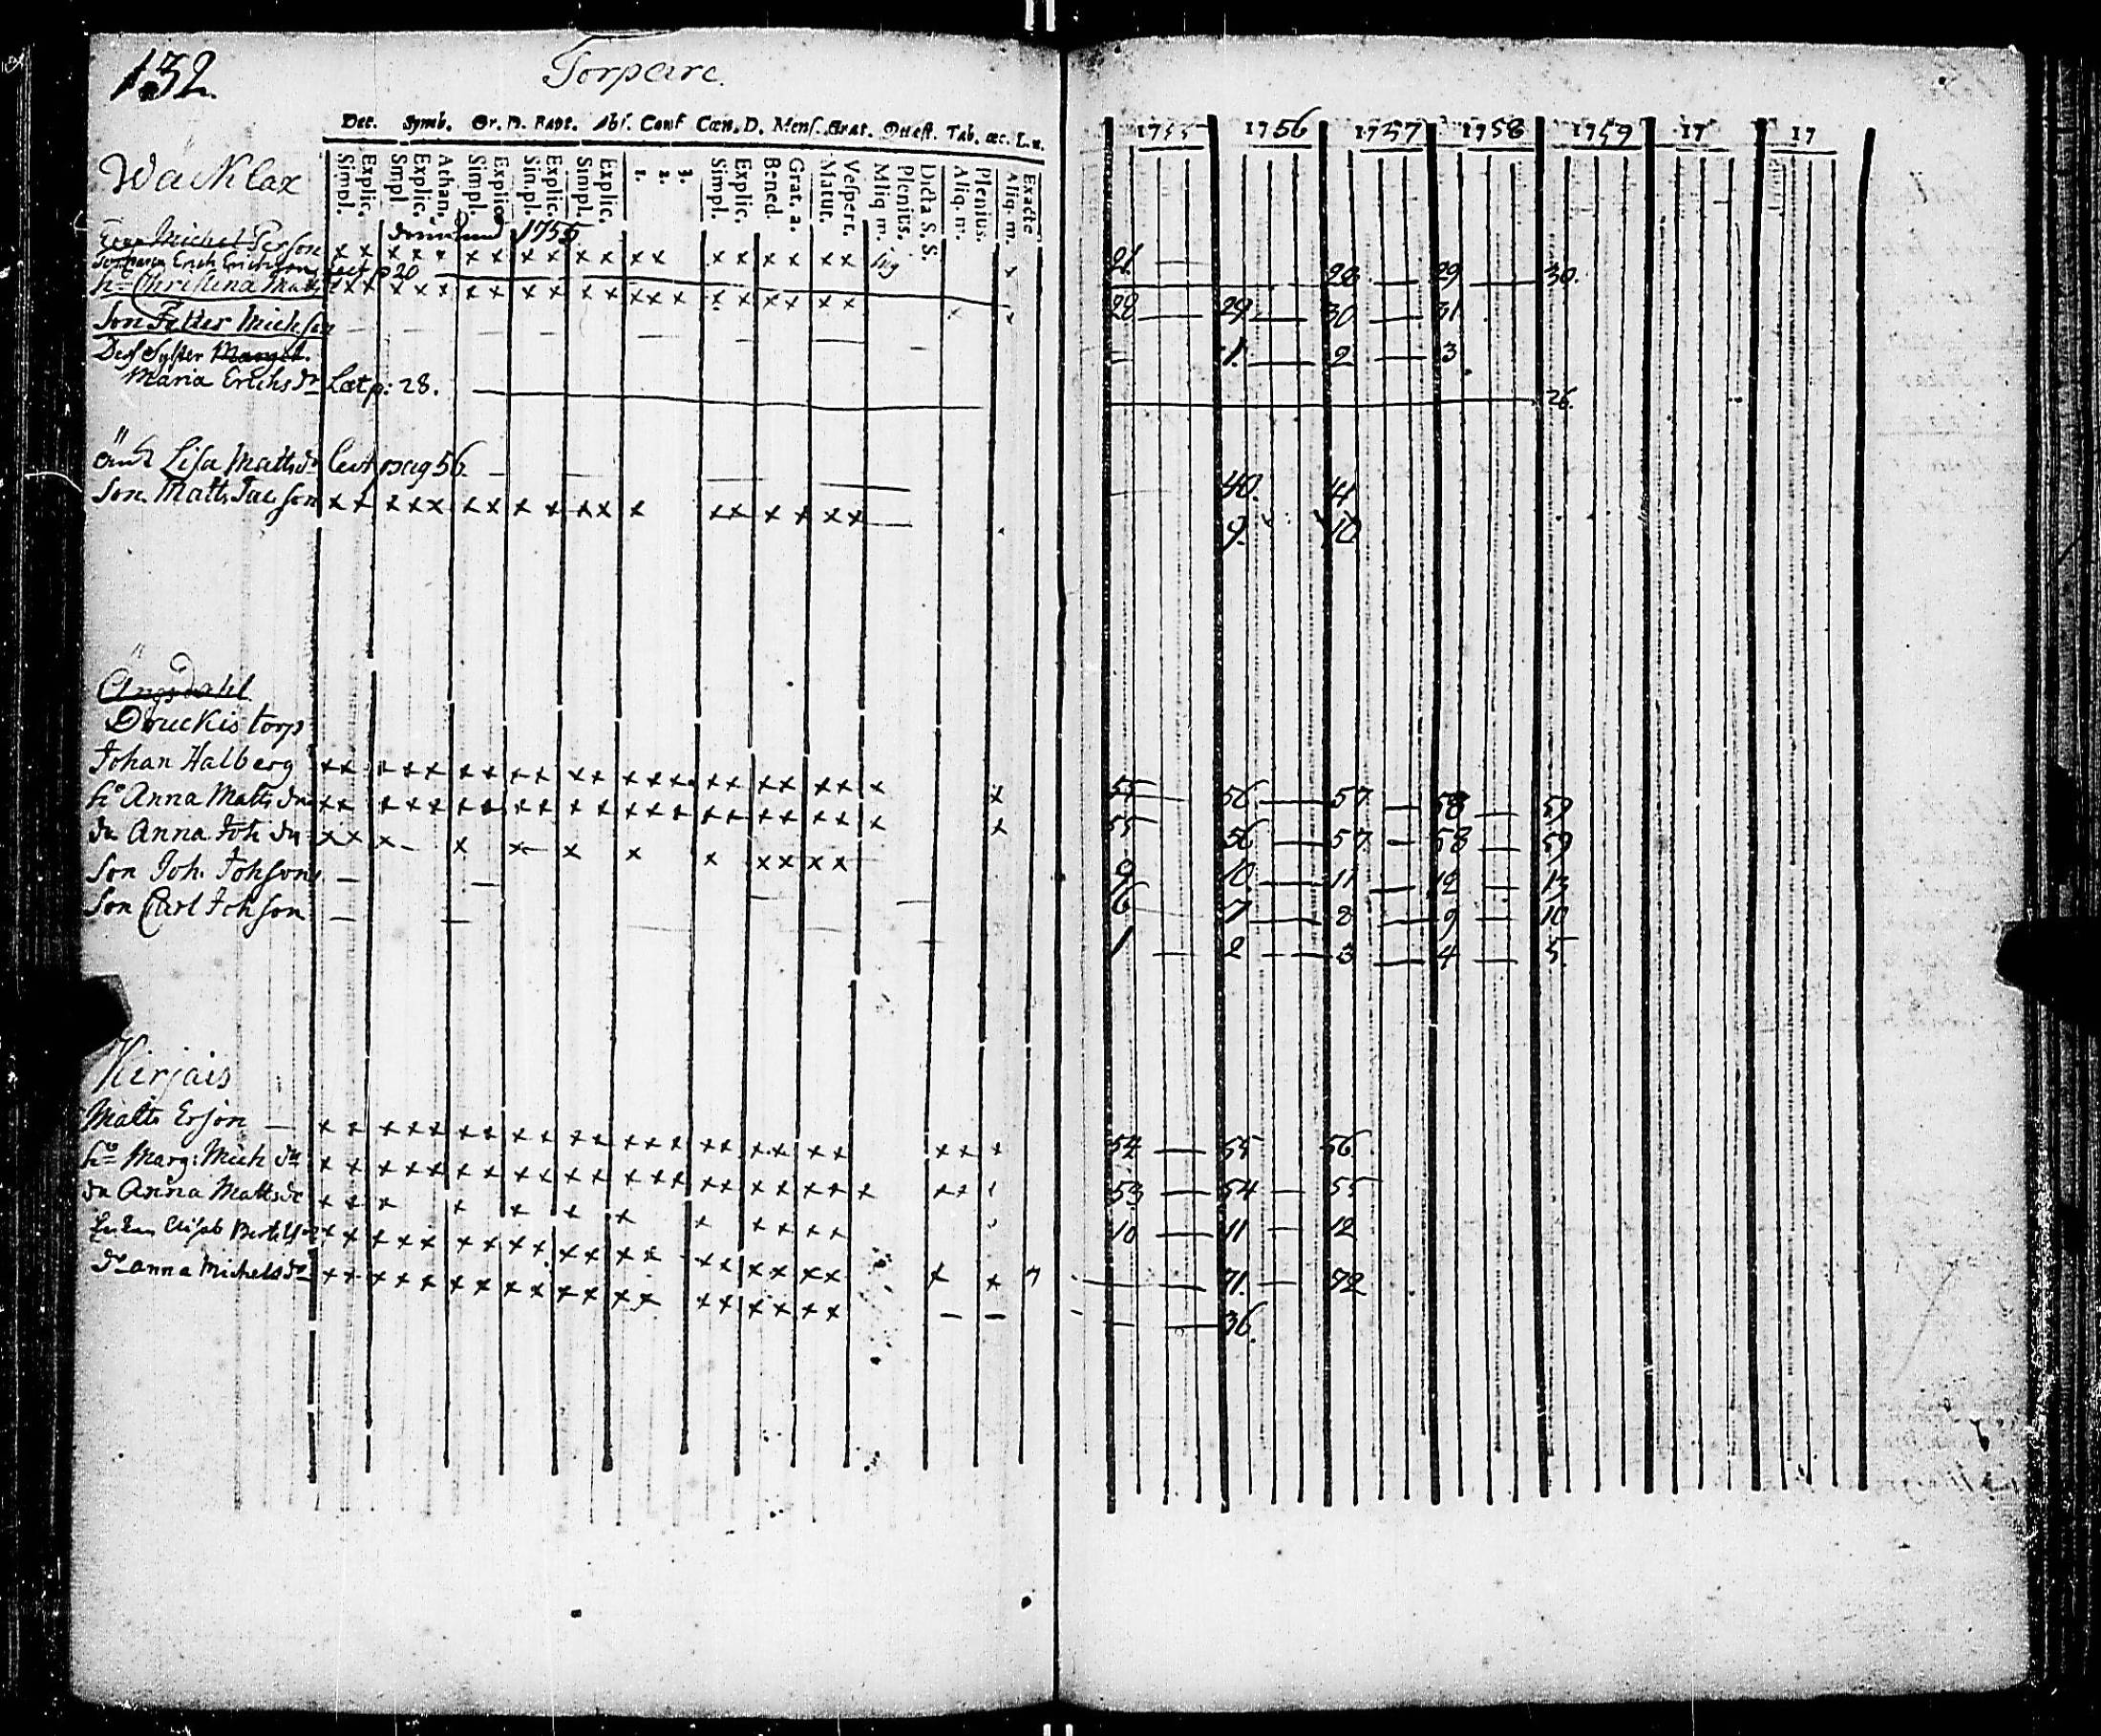 132. Torpare.
Dec. Symb. Or. D. Bapt. Abs. Conf Cœn. D. Mens. Grat. Quæst. Tab. œc. L.
1755 1756 1757 1758 1759 17 17
Simpl. Explic. Simpl. Explic. Athan. Simpl. Explic. Simpl. Explic. Simpl. Explic. 1. 2. 3. Simpl. Explic. Bened. Grat. a. Matut. Vespert. Aliq. m. Plenius. Dicta S. S. Aliq. m. Plenius. Aliq. m. Exacte
Wacklax
Michel Person x x x x x x x x x x x x x x x x x x x
1755
21
Erich Erichson p 20 28 29 30.
hu Christina Matts x x x x x x x x x x x x x x x x x x x x
28 29 30 31
Son Petter Michson
1. 2 3
Dess Syster Marget.
Maria Erichsdr Læt p: 28. 26.
Änk Lisa Mattsdr pag 56
40. 41
Son Matts Jacson x x x x x x x x x x x x x x x x x x
9. 10
Ängsdahl
Druckis torp
Johan Halberg x x x x x x x x x x x x x x x x x x x x x x x
55 56 57 58 59
hu Anna Matts dr x x x x x x x x x x x x x x x x x x x x x x x
55 56 57 58 59
dr Anna Joh dr x x x x x x x x x x x x
9 10 11 12 13
Son Joh. Johson
6 7 8 9 10
Son Carl Johson
1 2 3 4 5.
Kirjais
Matts Erson x x x x x x x x x x x x x x x x x x x x x x x
54 55 56
hu Marg: Mich dr x x x x x x x x x x x x x x x x x x x x x x x
53 54 55
dr Anna Mattsdr x x x x x x x x x x x x
10 11 12
Elisab Bertils x x x x x x x x x x x x x x x x x x x x x
71. 72
dr anna Michelsdr x x x x x x x x x x x x x x x x x x x
36.